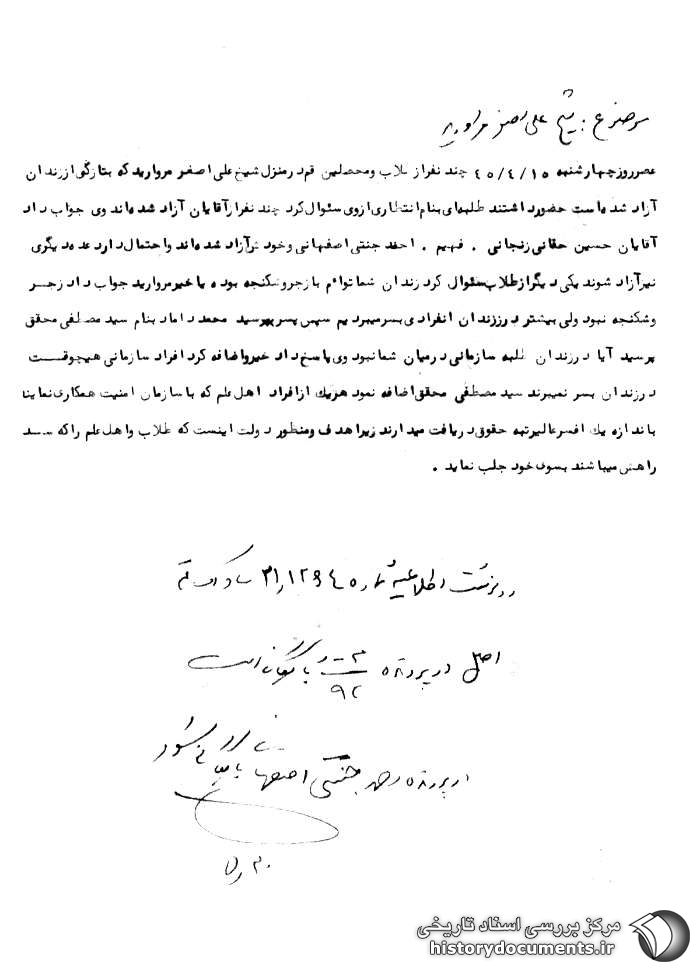 موضوع : شیخ علی اصغر مروارید
عصر روز چهارشنبه ۴۵/۴/۱۵ چند نفر از طلاب و محصلین قم در منزل شیخ علی اصغر مروارید که بتازگی از زندان
آزاد شده است حضور داشتند طلبه‌ای بنام انتظاری از وی سئوال کرد چند نفر از آقایان آزاد شده‌اند وی جواب داد
آقایان حسین حقانی زنجانی . فهیم . احمد جنتی اصفهانی و خودش آزاد شده‌اند و احتمال دارد عده دیگری
نیز آزاد شوند یکی دیگر از طلاب سئوال کرد زندان شما توام با زجر و شکنجه بوده یا خیر مروارید جواب داد زجر
و شکنجه نبود ولی بیشتر در زندان انفرادی بسر میبردیم سپس پسر بهرسید محمد داماد بنام سید مصطفی محقق
پرسید آیا در زندان طلبه سازمانی در میان شما نبود وی پاسخ داد خیر و اضافه کرد افراد سازمانی هیچوقت
در زندان بسر نمیبرند سید مصطفی محقق اضافه نمود هریک از افراد اهل علم که با سازمان امنیت همکاری نماینا
باندازه یک افسر عالیرتبه حقوق دریافت میدارند زیرا هدف و منظور دولت اینست که طلاب و اهل علم را که سد
راهش میباشند بسوی خود جلب نماید .
رونوشت اطلاعیه شماره ۲۱/۱۲۹۴ ساواک قم
اصل در پرونده ۹۲ بایگانی است
در پرونده احمد جنتی اصفهانی بایگانی شود
مرکز بررسی اسناد تاریخی
historydocuments.ir